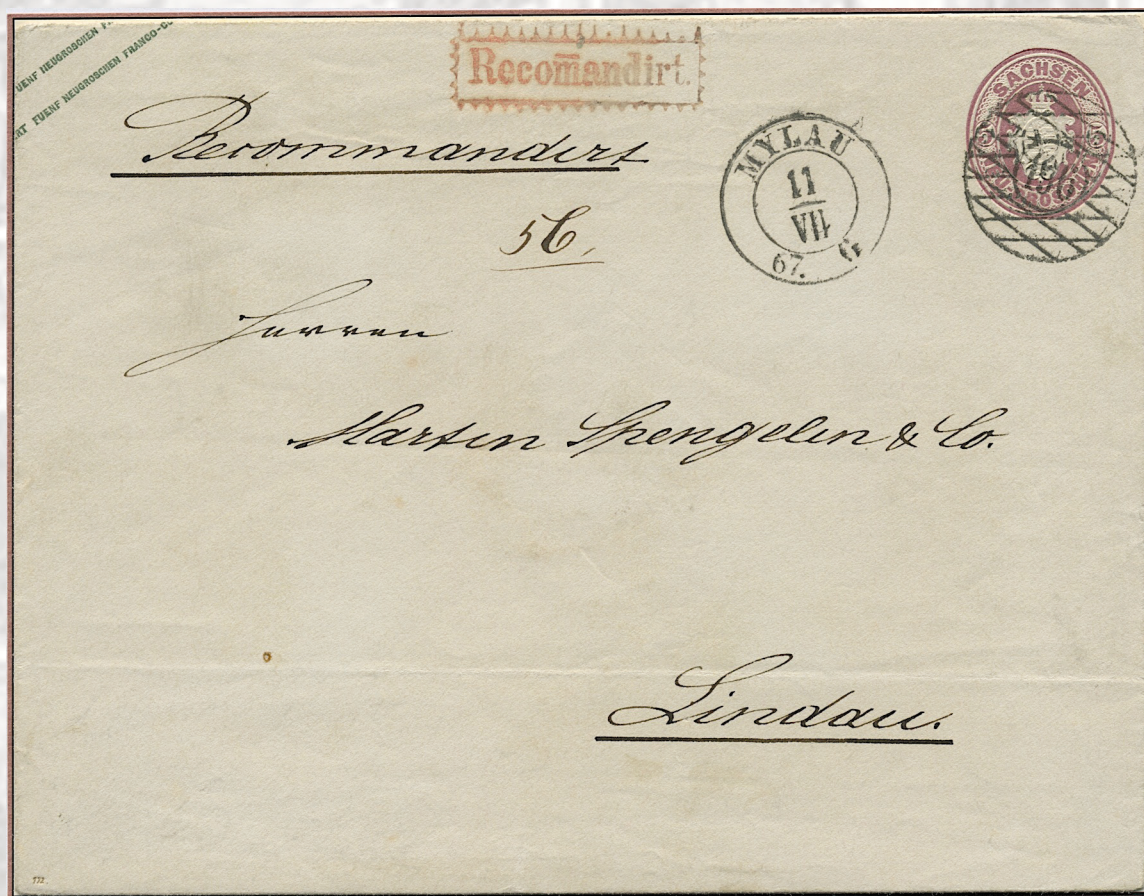 UENF NEUGROSCHEN
RT FUENF NEUGROSCHEN FRANCO-CO
Recom̅andirt.
SACHSEN
Recommandirt
MYLAU
11
VII
67. G
56.
Herren
Martin Spengelin & Co.
Lindau.